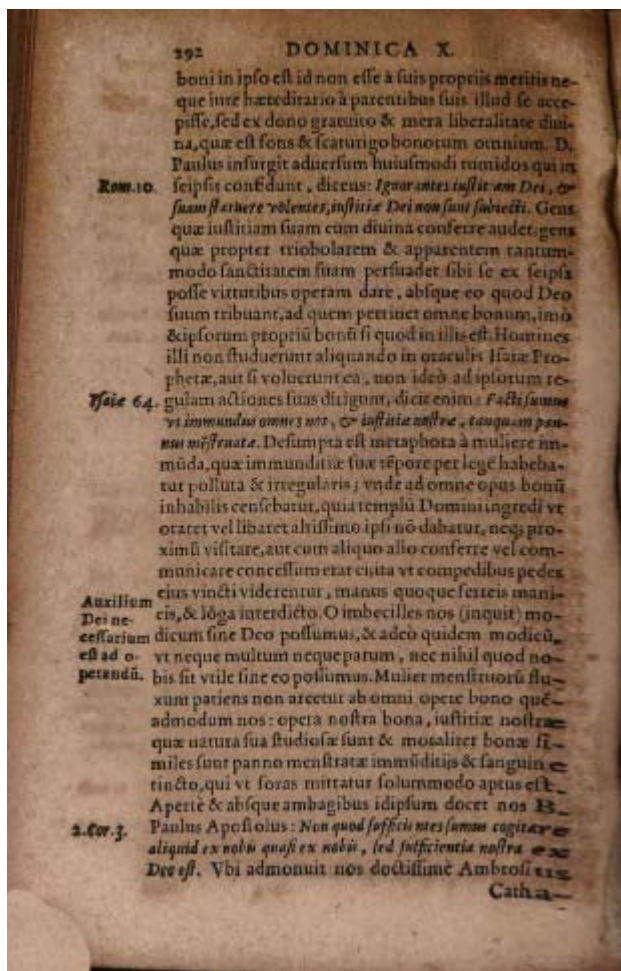 292 DOMINICA X.
boni in ipso est id non esse à suis proprijs meritis ne-
que iure hæreditario à parentibus suis illud se acce-
pisse, sed ex dono gratuito & mera liberalitate diui-
na, quæ est fons & scaturigo bonorum omnium. D.
Paulus insurgit aduersum huiusmodi tumidos qui in
Rom. 10. seipsis confidunt, dicens: Ignorantes iustitiam Dei, &
suam statuere volentes, iustitiæ Dei non sunt subiecti. Gens
quæ iustitiam suam cum diuina conferre audet: gens
quæ propter triobolarem & apparentem tantum-
modo sanctitatem suam persuadet sibi se ex seipsa
posse virtutibus operam dare, absque eo quod Deo
suum tribuant, ad quem pertinet omne bonum, imò
& ipsorum propriũ bonũ si quod in illis est. Homines
illi non studuerunt aliquando in oraculis Isaiæ Pro-
phetæ, aut si voluerunt ea, non ideò ad ipsorum re-
Isaiæ 64. gulam actiones suas dirigunt, dicit enim: Facti sumus
vt immundus omnes nos, & iustitiæ nostræ, tanquam pan-
nus mẽstruatæ. Desumpta est metaphora à muliere im-
mũda, quæ immunditiæ suæ tẽpore per legẽ habeba-
tur polluta & irregularis; vnde ad omne opus bonũ
inhabilis censebatur, quia templũ Domini ingredi vt
oraret vel libaret altissimo ipsi nõ dabatur, neq; pro-
ximũ visitare, aut cum aliquo alio conferre vel com-
municare concessum erat: ita vt compedibus pedes
eius vincti viderentur, manus quoque ferreis mani-
Auxilium
Dei ne-
cessarium
est ad o-
perandũ.
cis, & lõga interdicto. O imbecilles nos (inquit) mo-
dicum sine Deo possumus, & adeò quidem modicũ,
vt neque multum neque parum, nec nihil quod no-
bis sit vtile sine eo possumus. Mulier menstruorũ flu-
xum patiens non arcetur ab omni opere bono quẽ-
admodum nos: opera nostra bona, iustitiæ nostræ
quæ natura sua studiosæ sunt & moraliter bonæ si-
miles sunt panno menstratæ immũditijs & sanguine
tincto, qui vt foras mittatur solummodo aptus est.
Apertè & absque ambagibus idipsum docet nos B.
2. Cor. 3. Paulus Apostolus: Non quod sufficientes sumus cogitare
aliquid ex nobis quasi ex nobis, sed sufficientia nostra ex
Deo est. Vbi admonuit nos doctissimè Ambrosius
Catha-